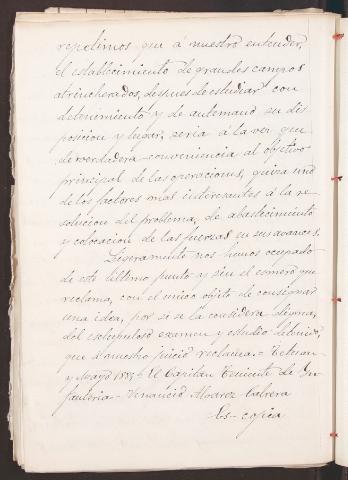 repetimos que á nuestro entender,
el establecimiento de grandes campos
atrincherados, despues de estudiar con
detenimiento y de antemano su dis
posicion y lugar, seria á la vez que
de verdadera conveniencia al objetivo
principal de las operaciones, quiza uno
de los factores mas interesantes á la re
solucion del problema, de abastecimiento
y colocacion de las fuerzas en sus avances.
Ligeramente nos hemos ocupado
de este ultimo punto y sin el esmero que
reclama, con el unico objeto de consignar
una idea, por si se la considera digna,
del escrupuloso examen y estudio detenido,
que á nuestro juicio reclama = Tetuan
y Mayo 1885 = El Capitan Teniente de In
fanteria = Venancio Alvarez Cabrera
Es copia